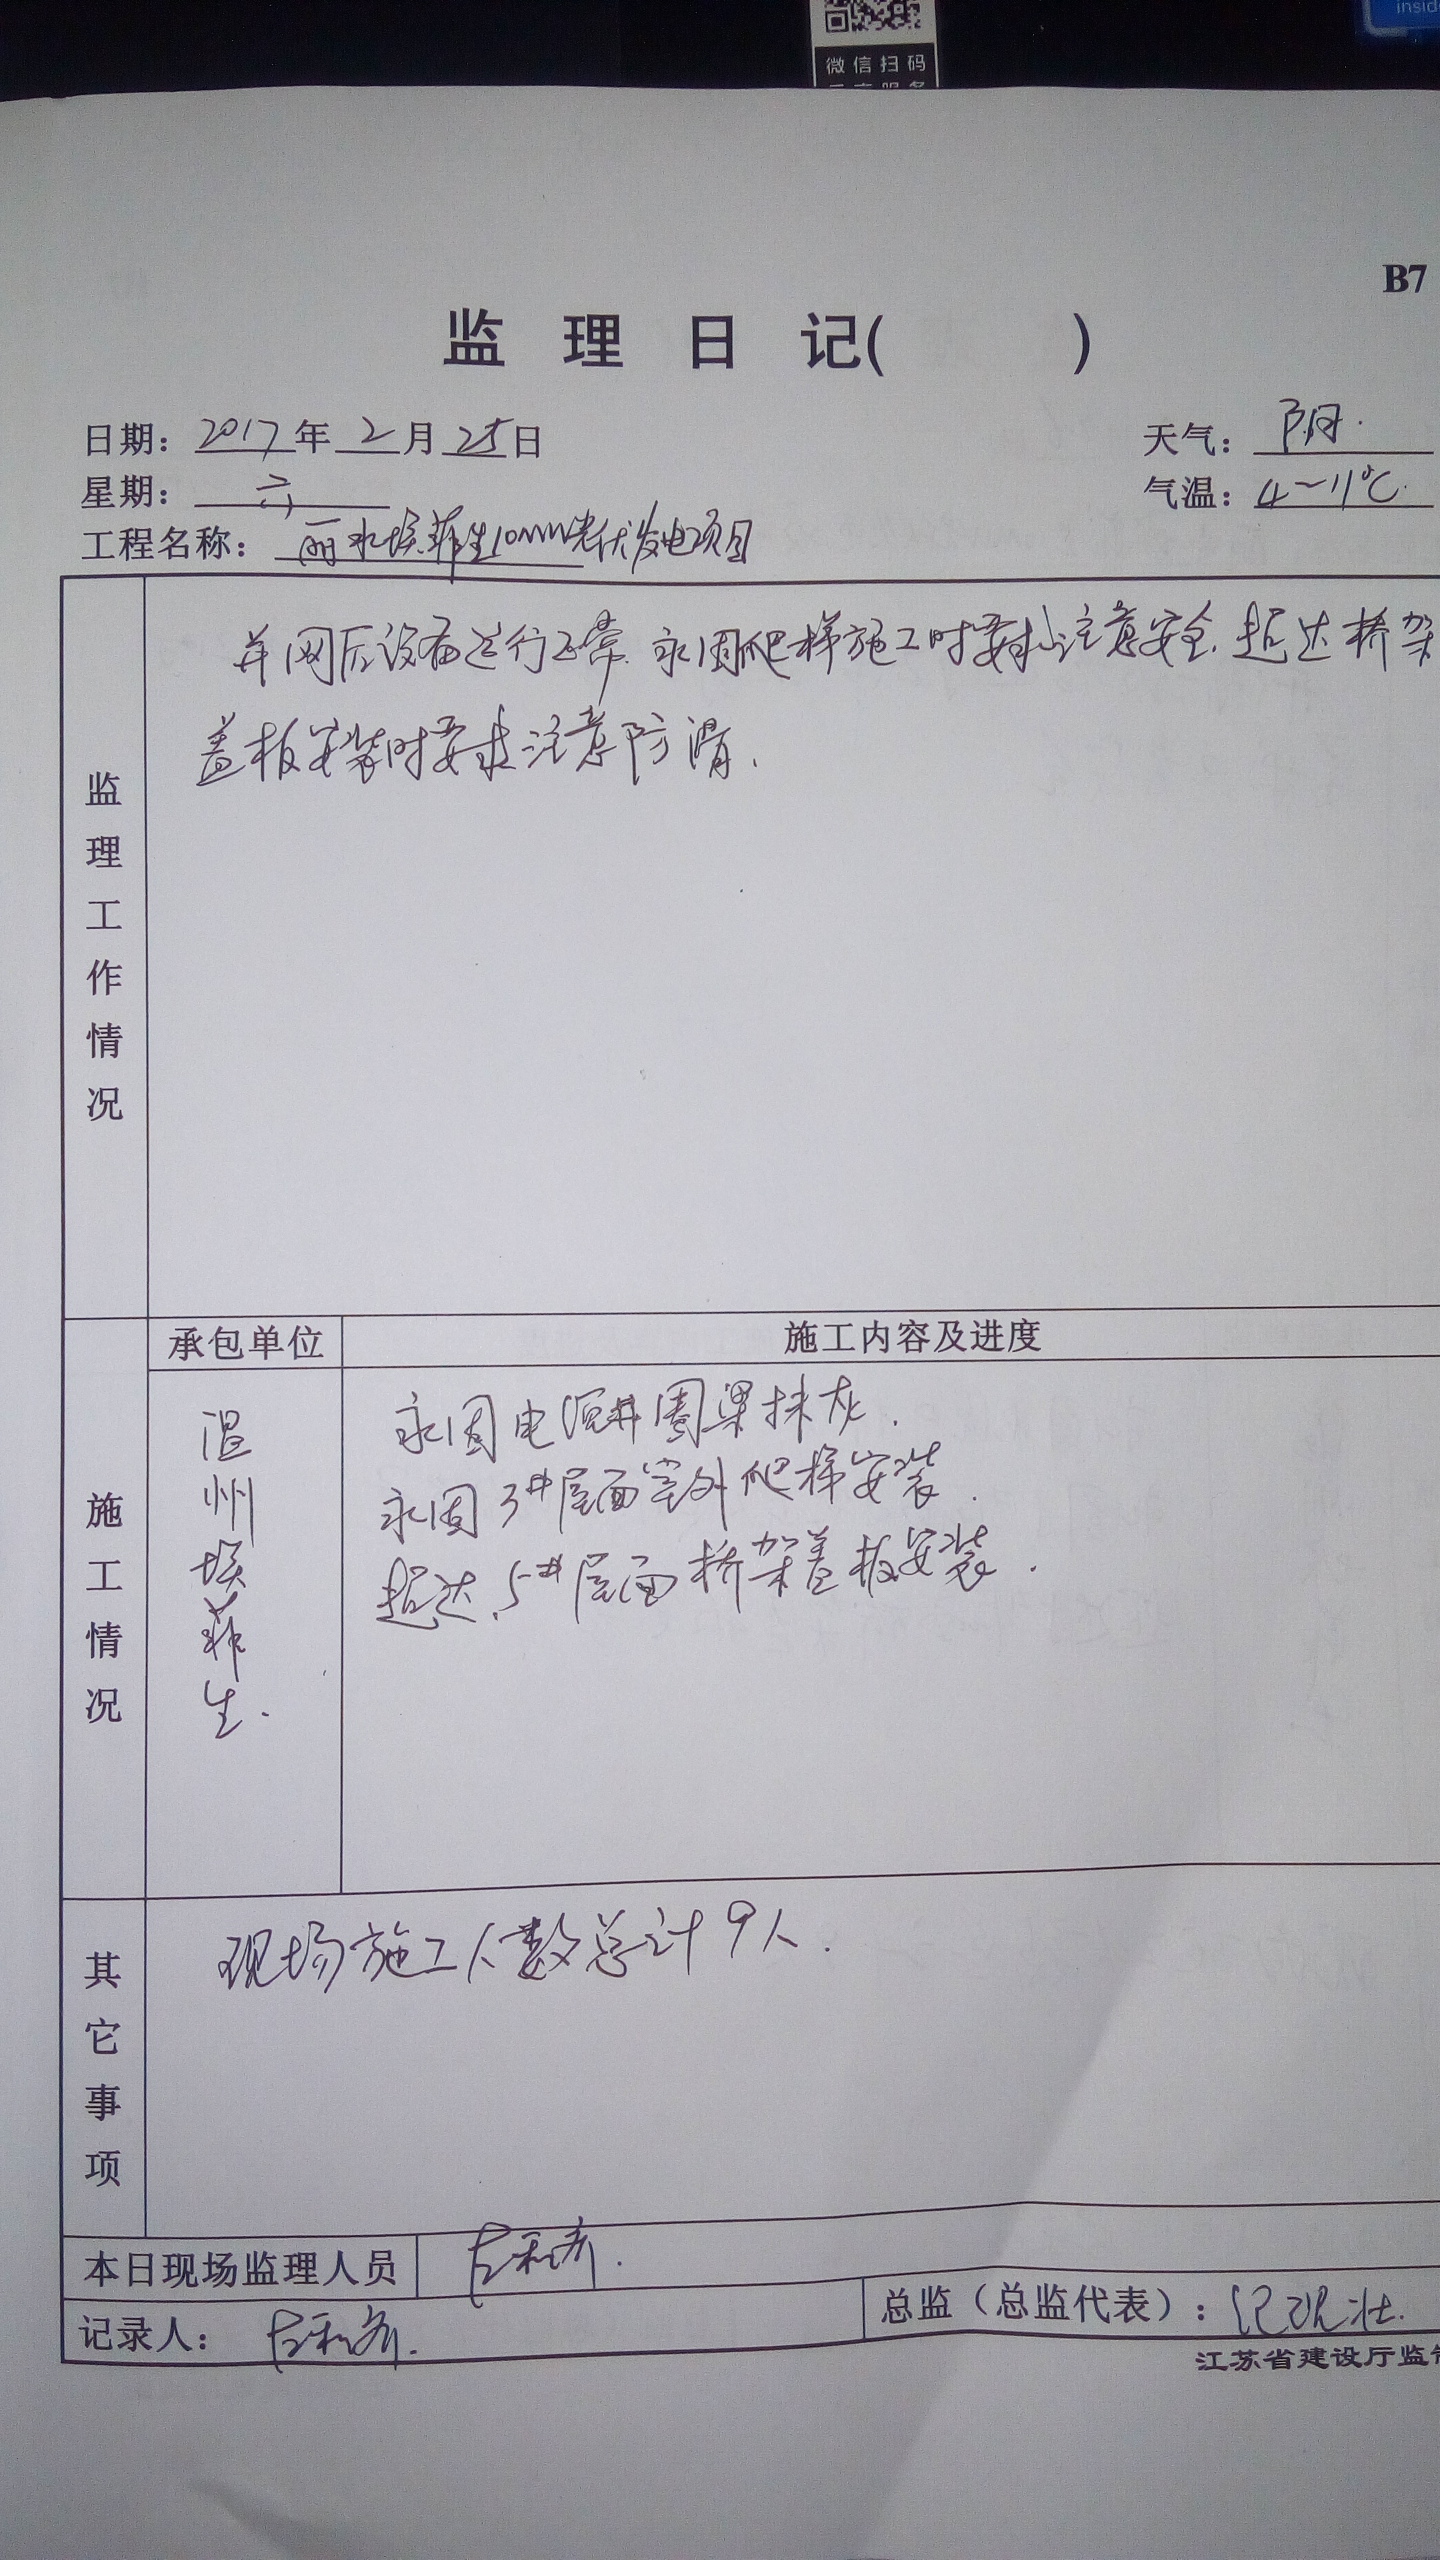 insid
微信扫码
B7
监 理 日 记( )
日期: 2017 年 2 月 25 日
天气: 阴.
星期: 六
气温: 4~11℃.
工程名称: 丽水埃菲生10MW光伏发电项目
监理工作情况
并网后设备运行正常.永固爬梯施工时要求注意安全.超达桥架
盖板安装时要求注意防滑.
施工情况
承包单位
施工内容及进度
温州埃菲生.
永固电源井圈梁抹灰.
永固3#屋面室外爬梯安装.
超达.5#屋面桥架盖板安装.
其它事项
现场施工人数总计9人.
本日现场监理人员
记录人:
总监(总监代表):
江苏省建设厅监制